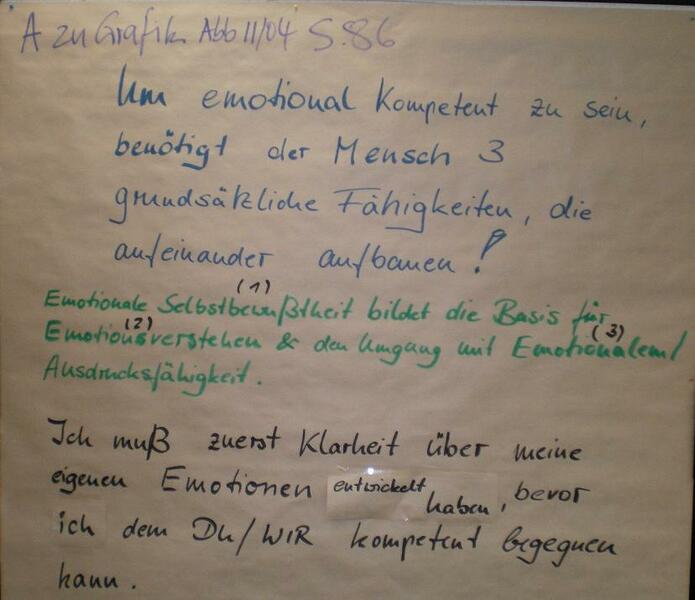 A zu Grafik Abb 11/04 S.86
Um emotional kompetent zu sein,
benötigt der Mensch 3
grundsätzliche Fähigkeiten, die
aufeinander aufbauen!
(1)
Emotionale Selbstbewußtheit bildet die Basis für
(2) (3)
Emotionsverstehen & den Umgang mit Emotionalem/
Ausdrucksfähigkeit.
Ich muß zuerst Klarheit über meine
eigenen Emotionen entwickelt haben, bevor
ich dem DU/WIR kompetent begegnen
kann.